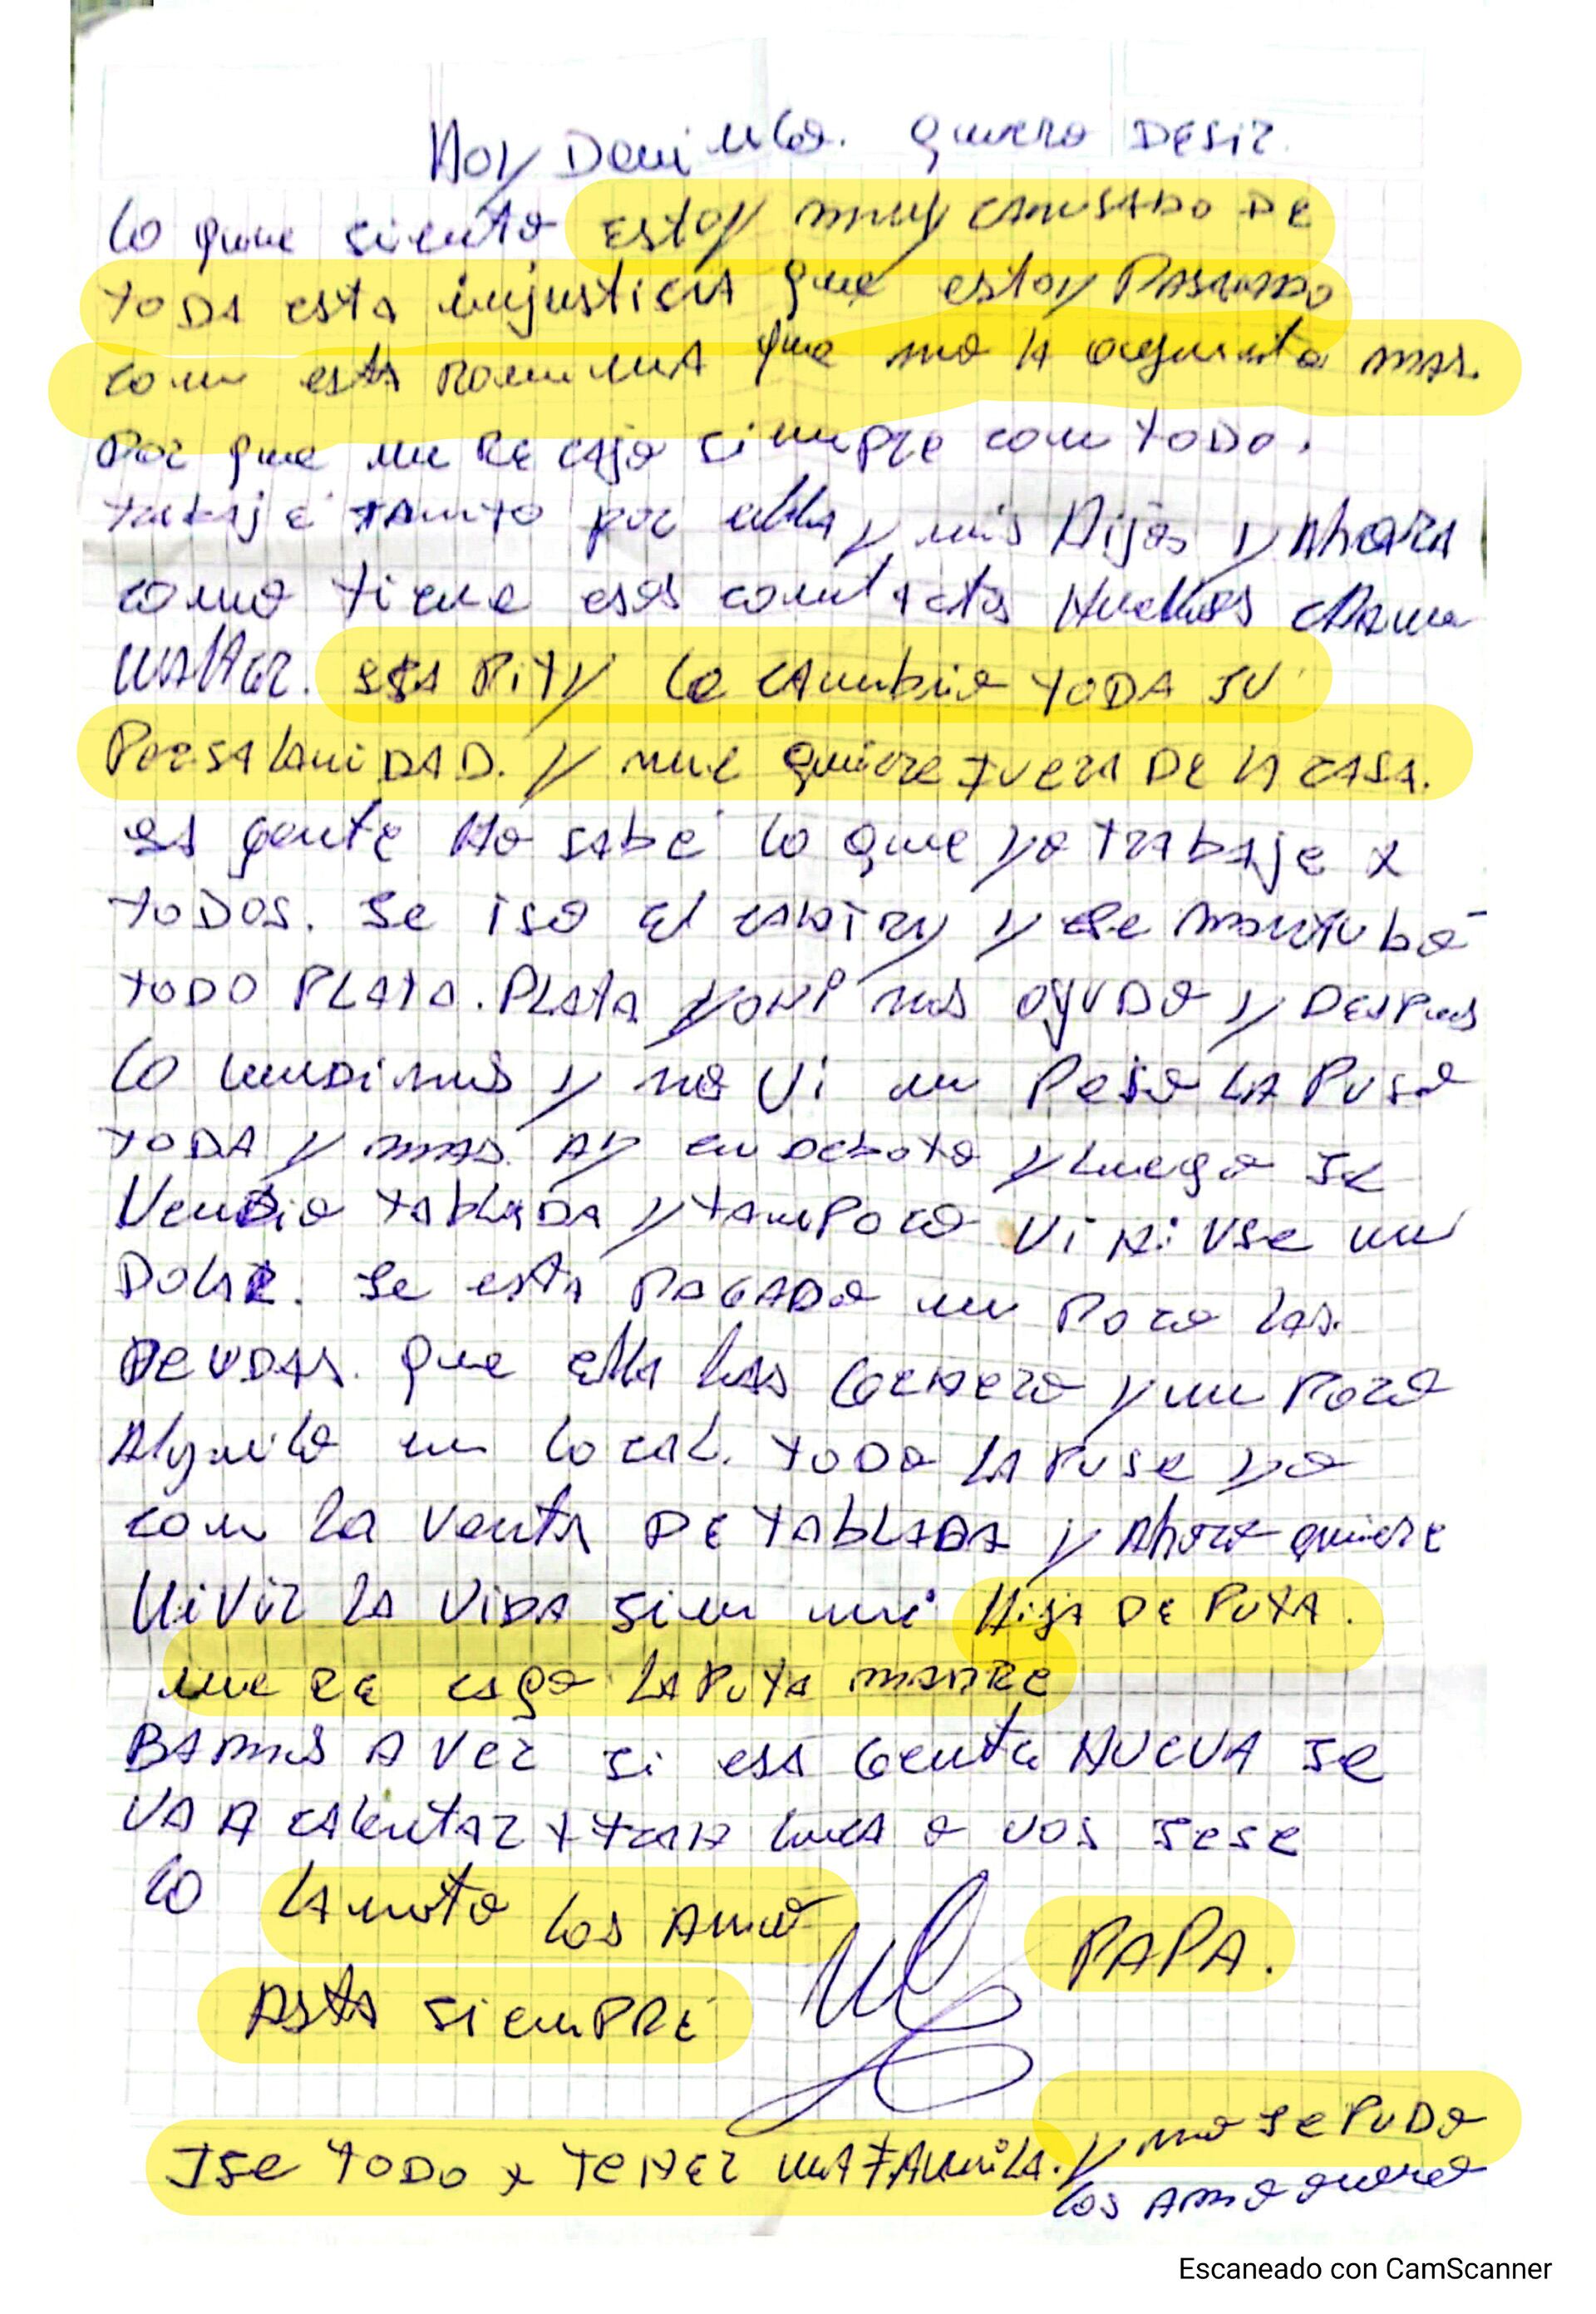 Hoy Domingo. quiero DESir
lo que siento Estoy muy CANSADO DE
TODA esta injusticia que estoy PASANDO
con esta que no la aguanto mas.
Por que me RE cago siempre con TODO.
trabajé tanto por ella y mis Hijos y Ahora
como tiene esos contactos Nuevos
ESA Pity le cambio TODA SU
PersalaniDAD. y me quiere FUERA DE LA CASA.
esa gente No sabe lo que yo trabaje x
TODOS. Se iso el y se mantubo
TODO PLATA. PLAta nos ayuDo y Despues
lo vendimos y no vi un Peso LA Puse
TODA y mas. Ay en Deboto y luego se
Vendio tablaDA y tampoco Vi Ni Use un
DolAR. Se esta PAGADO un Poco las.
DeuDAs. que ella las Genero y un Poco
Alquilo un local. TODO LA Puse yo
con la venta DE TABLADA y Ahora quiere
Vivir la ViDA sin mi Hija DE PUTA.
me RE cago LA PuTa MADRE
BAmos A Ver si esa Gente NUEVA se
VA A CAlentar x a vos
lo LAmento los Amo
Asta siemPRE
PAPA.
Ise TODO x TENER una FAmiliA. y no se PuDo
los Amo
Escaneado con CamScanner